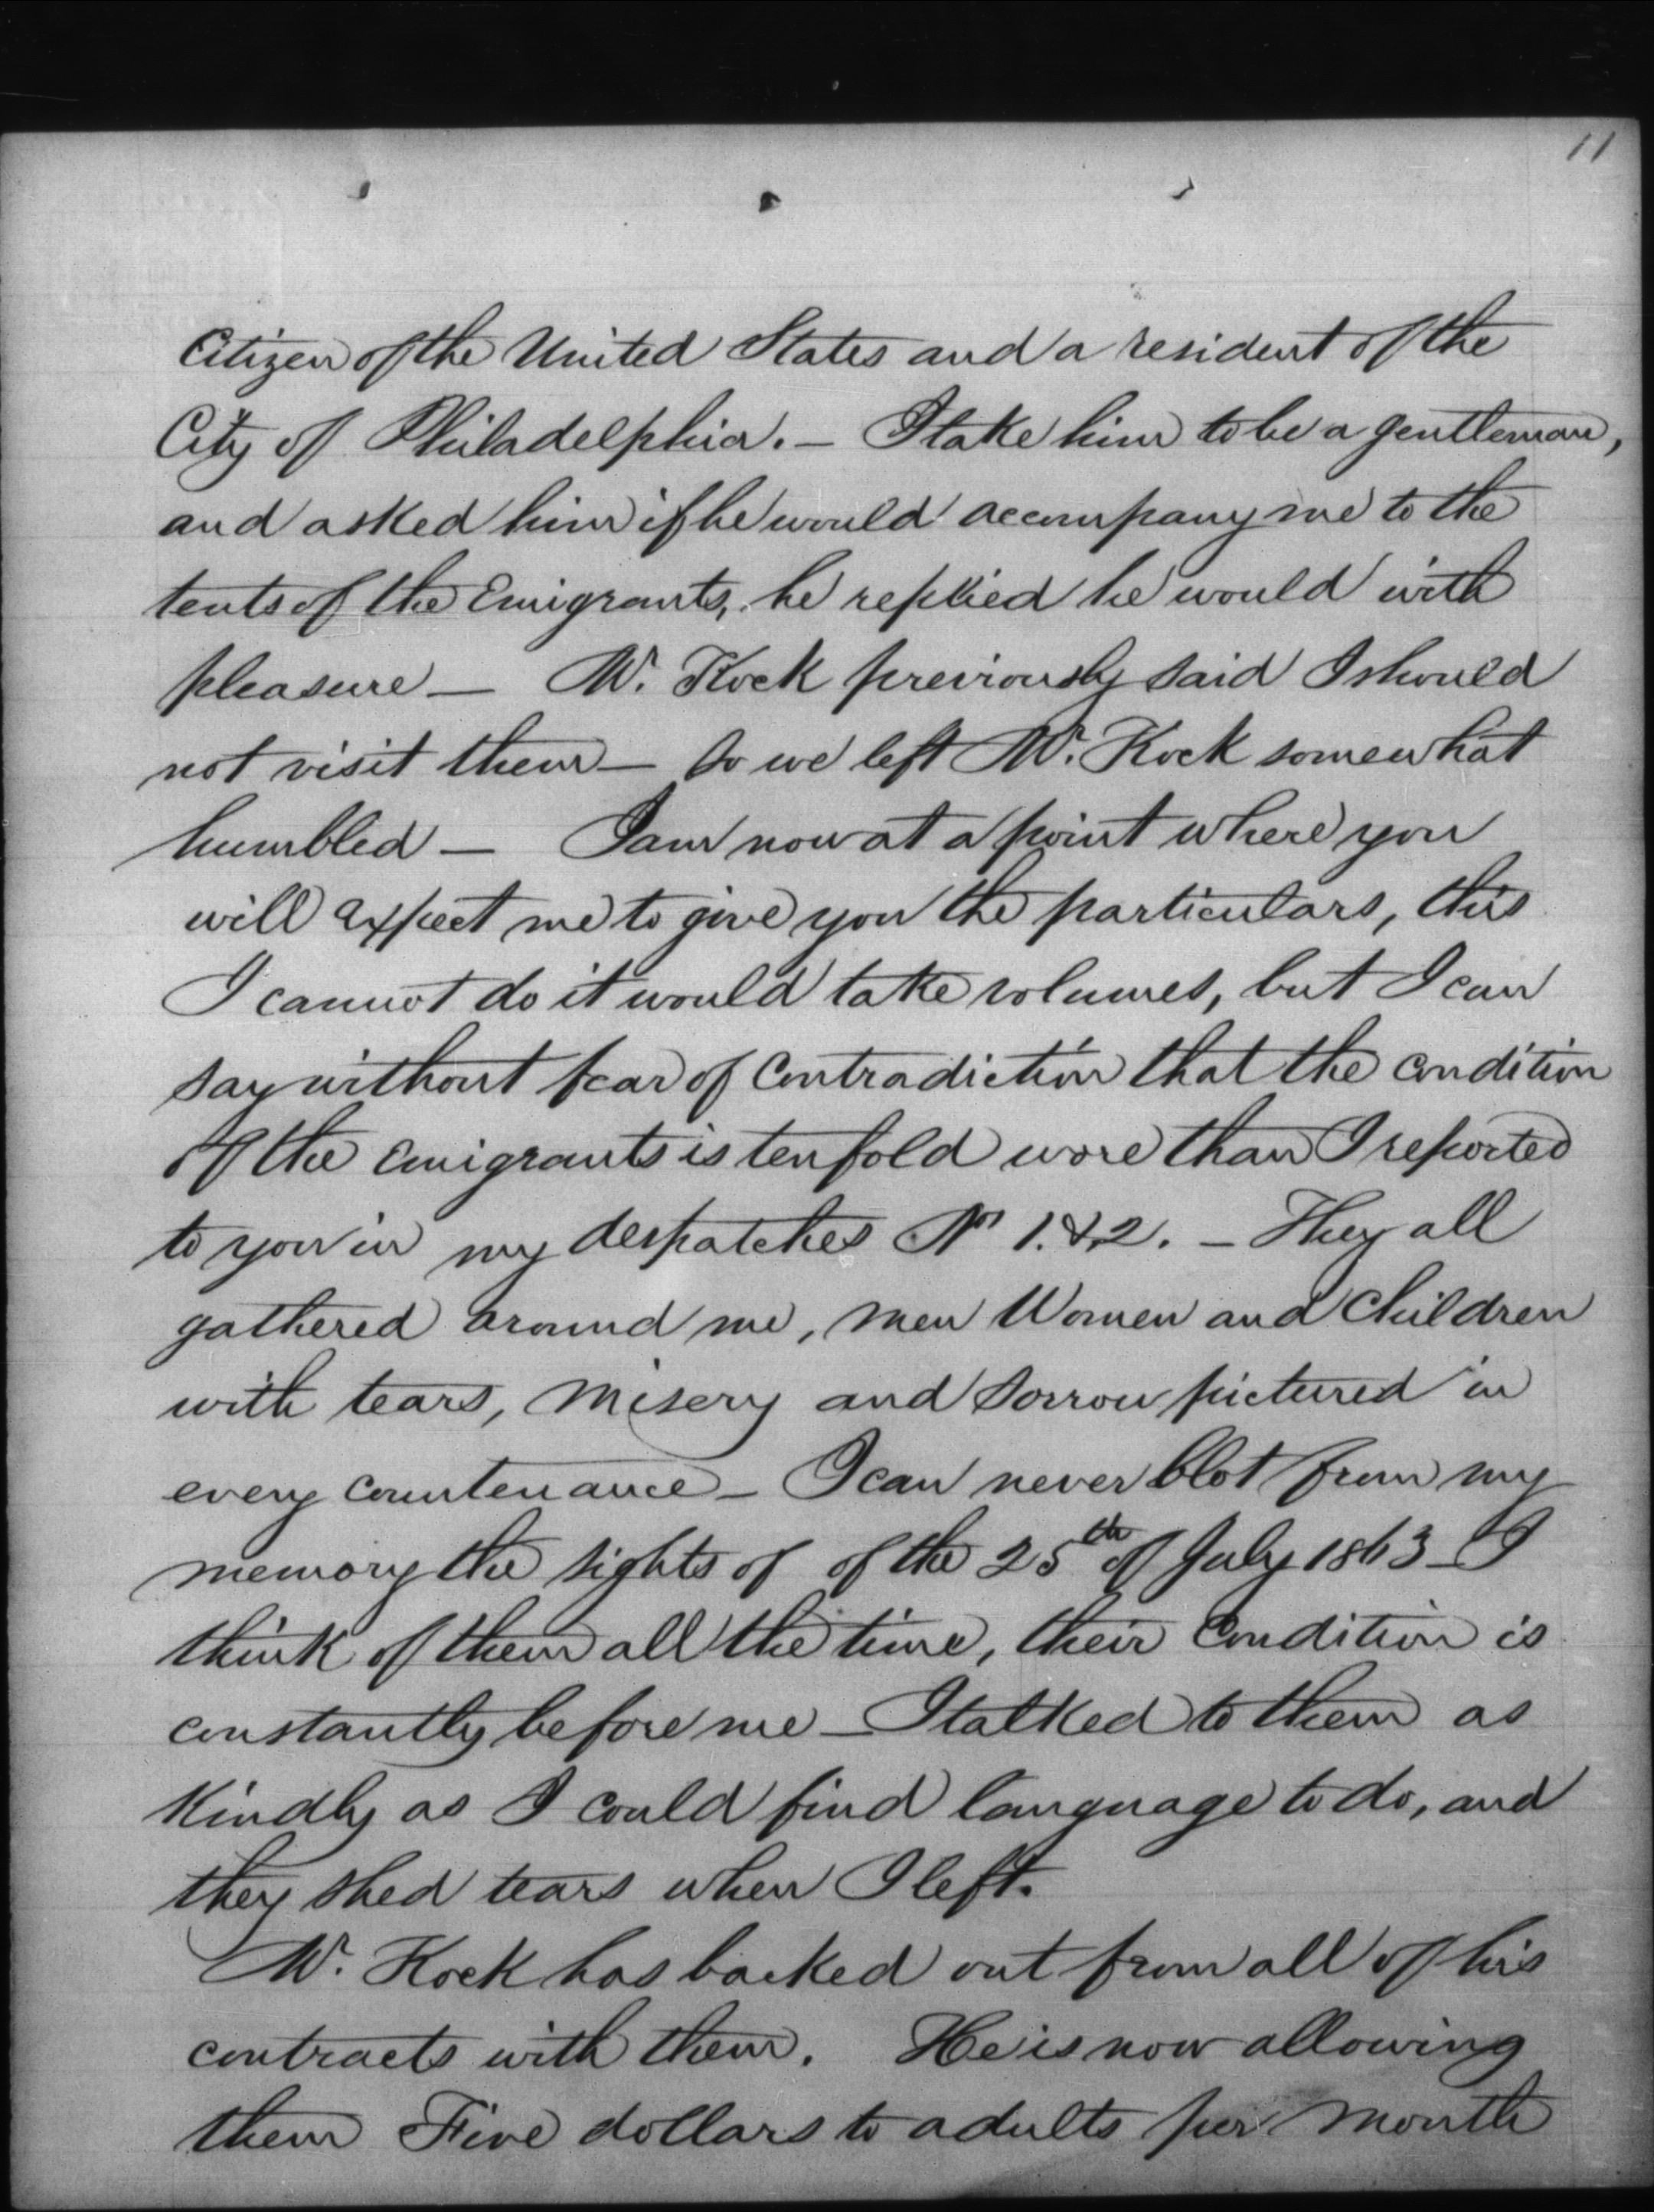 11
Citizen of the United States and a resident of the
City of Philadelphia. – I take him to be a gentleman,
and asked him if he would accompany me to the
tents of the Emigrants, he replied he would with
pleasure – Mr. Kock previously said I should
not visit them – So we left Mr. Kock somewhat
humbled – I am now at a point where you
will expect me to give you the particulars, this
I cannot do it would take volumes, but I can
say without fear of Contradiction that the condition
of the emigrants is tenfold worse than I reported
to you in my despatches Nº 1. & 2. – They all
gathered around me, men Women and Children
with tears, misery and sorrow pictured in
every countenance – I can never blot from my
memory the sights of of the 25th of July 1863 – I
think of them all the time, their Condition is
constantly before me – I talked to them as
Kindly as I could find language to do, and
they shed tears when I left.
Mr. Kock has backed out from all of his
contracts with them. He is now allowing
them Five dollars to adults per month